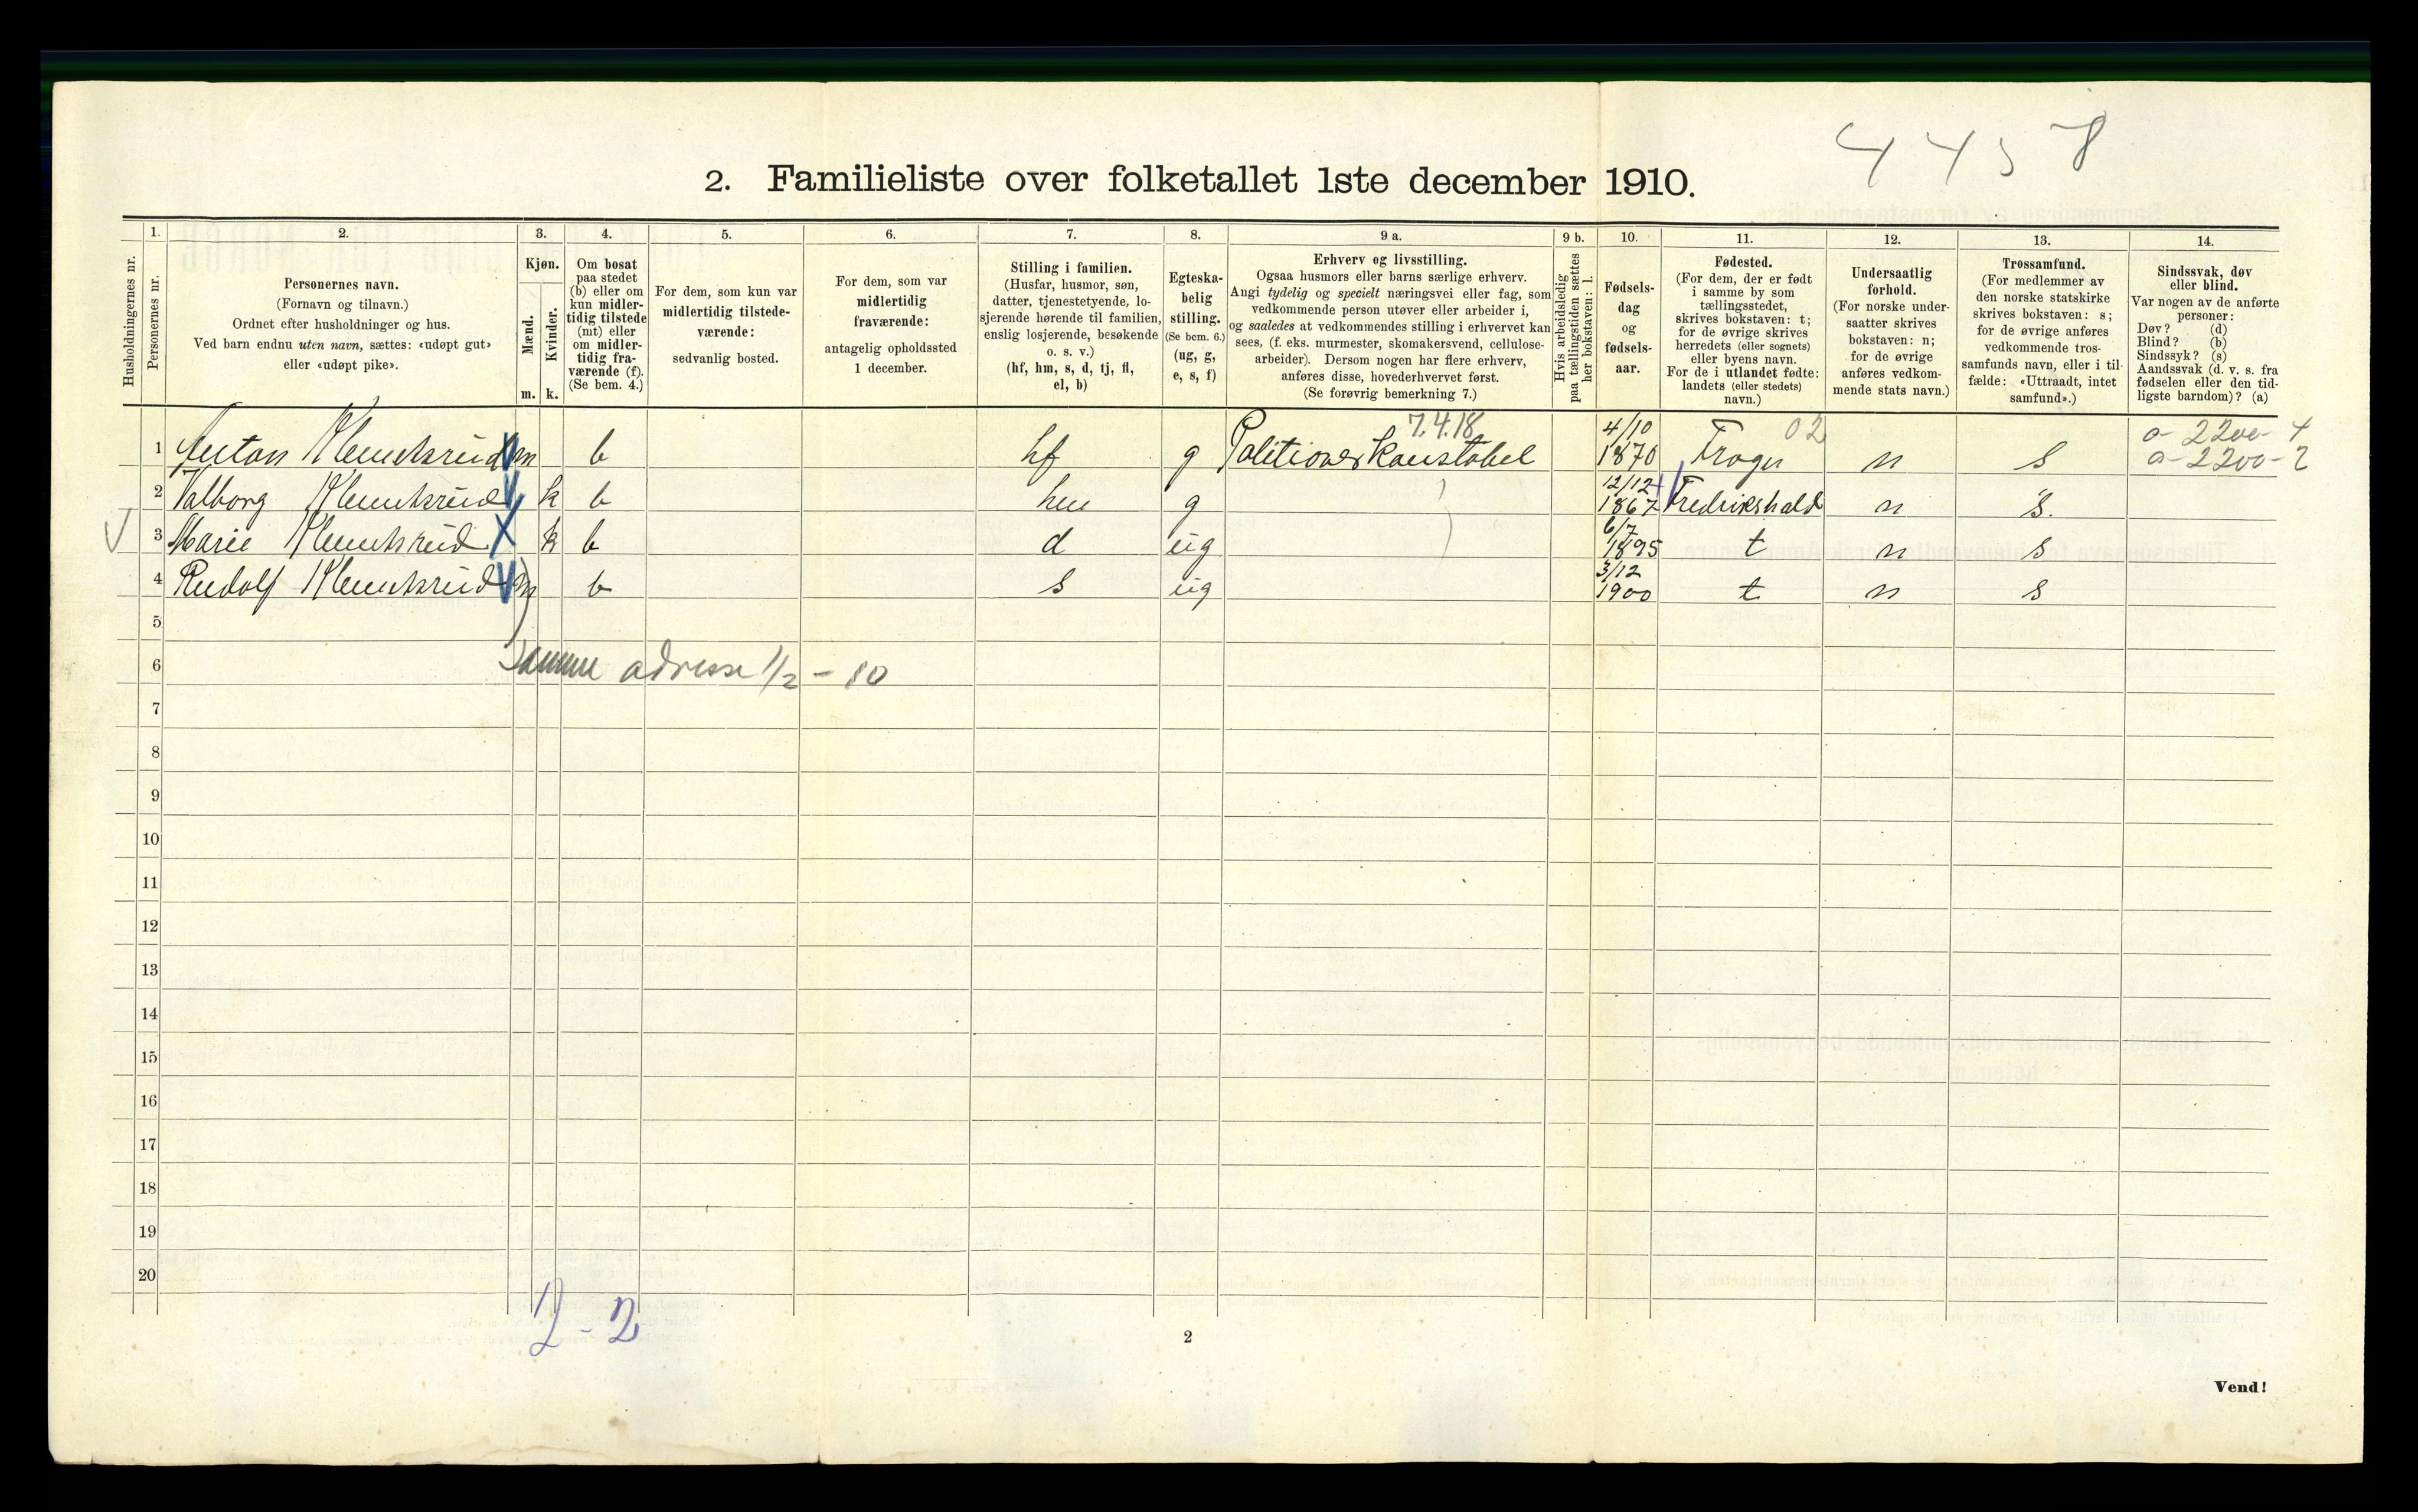 4458
2. Familieliste over folketallet 1ste december 1910.
Husholdningernes nr.
1.
Personernes nr.
2.
Personernes navn.
(Fornavn og tilnavn.)
Ordnet efter husholdninger og hus.
Ved barn endnu uten navn, sættes: «udøpt gut»
eller «udøpt pike».
3.
Kjøn.
Mænd.
Kvinder.
m. k.
4.
Om bosat
paa stedet
(b) eller om
kun midler-
tidig tilstede
(mt) eller
om midler-
tidig fra-
værende (f).
(Se bem. 4.)
5.
For dem, som kun var
midlertidig tilstede-
værende:
sedvanlig bosted.
6.
For dem, som var
midlertidig
fraværende:
antagelig opholdssted
1 december.
7.
Stilling i familien.
(Husfar, husmor, søn,
datter, tjenestetyende, lo-
sjerende hørende til familien,
enslig losjerende, besøkende
o. s. v.)
(hf, hm, s, d, tj, fl,
el, b)
8.
Egteska-
belig
stilling.
(Se bem. 6.)
(ug, g,
e, s, f)
9 a.
Erhverv og livsstilling.
Ogsaa husmors eller barns særlige erhverv.
Angi tydelig og specielt næringsvei eller fag, som
vedkommende person utøver eller arbeider i,
og saaledes at vedkommendes stilling i erhvervet kan
sees, (f. eks. murmester, skomakersvend, cellulose-
arbeider). Dersom nogen har flere erhverv,
anføres disse, hovederhvervet først.
(Se forøvrig bemerkning 7.)
9 b.
Hvis arbeidsledig
paa tællingstiden sættes
her bokstaven: l.
10.
Fødsels-
dag
og
fødsels-
aar.
11.
Fødested.
(For dem, der er født
i samme by som
tællingsstedet,
skrives bokstaven: t;
for de øvrige skrives
herredets (eller sognets)
eller byens navn.
For de i utlandet fødte:
landets (eller stedets)
navn.)
12.
Undersaatlig
forhold.
(For norske under-
saatter skrives
bokstaven: n;
for de øvrige
anføres vedkom-
mende stats navn.)
13.
Trossamfund.
(For medlemmer av
den norske statskirke
skrives bokstaven: s;
for de øvrige anføres
vedkommende tros-
samfunds navn, eller i til-
fælde: «Uttraadt, intet
samfund».)
14.
Sindssvak, døv
eller blind.
Var nogen av de anførte
personer:
Døv? (d)
Blind? (b)
Sindssyk? (s)
Aandssvak (d. v. s. fra
fødselen eller den tid-
ligste barndom)? (a)
7.4.18 4/10 02 a- 2200- 4
1 Anton Klemetsrud m b hf g Politioverkonstabel 1870 Frogn n s a- 2200- 2
12/12
2 Valborg Klemetsrud k b hm g 1867 Fredrikshald n s.
6/7
3 Marie Klemetsrud k b d ug 1895 t n s
3/12
4 Rudolf Klemetsrud m b s ug 1900 t n s
5
6 Samme adresse 1/2 - 10
7
8
9
10
11
12
13
14
15
16
17
18
19
20
2 - 2
2
Vend!